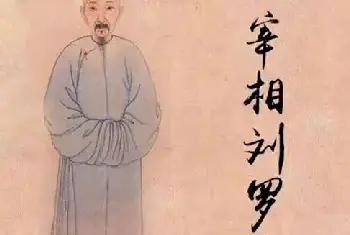 宰相刘罗